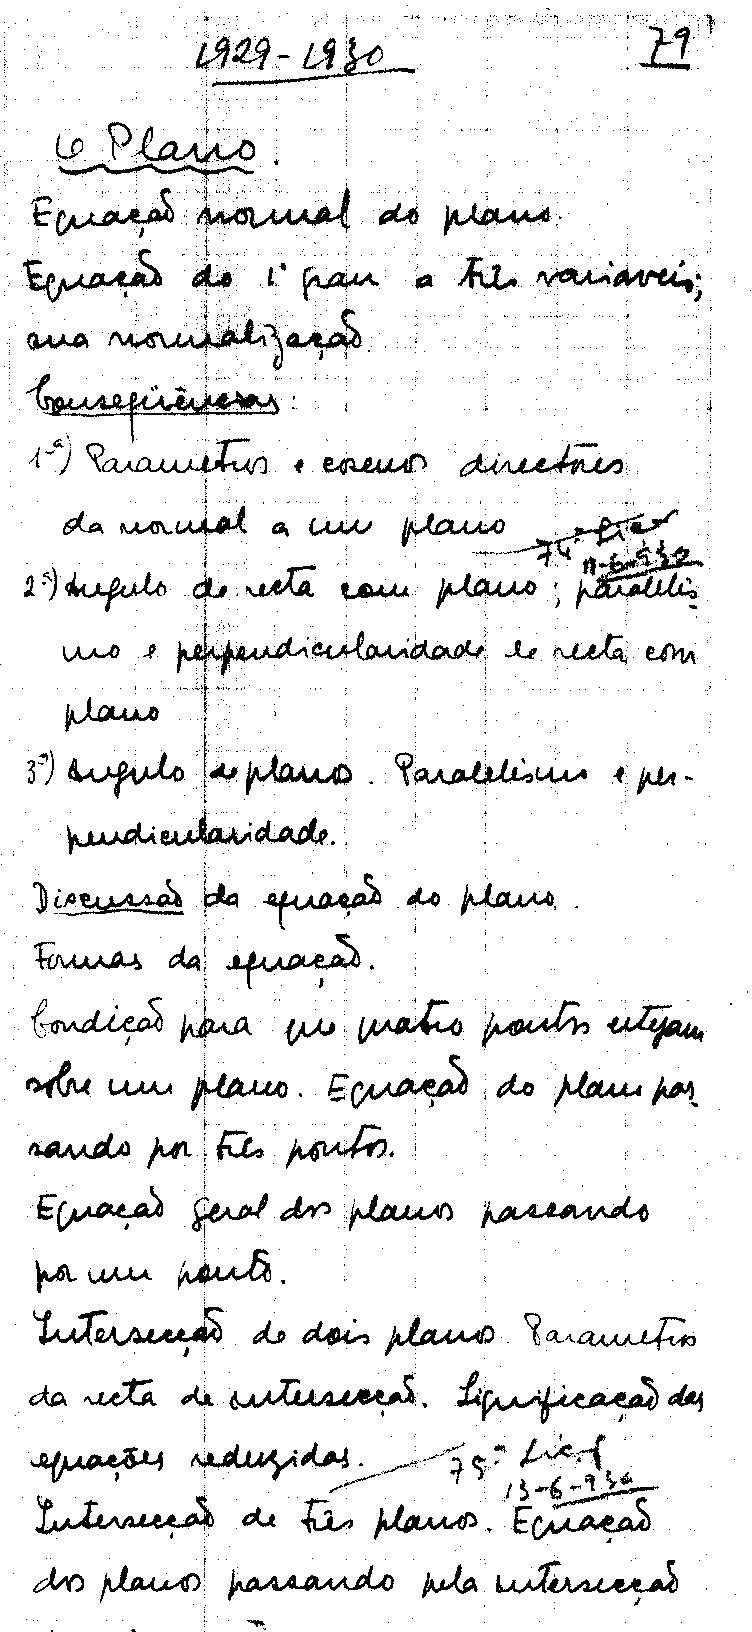 1929-1930 79
O Plano.
Equação normal do plano.
Equação do 1º grau a três variaveis;
sua normalização.
Conseqüências:
1ª) Parametros e cosenos directores
da normal a um plano
74ª Liç
11-6-930
2ª) Angulo de recta com plano; paralelis-
mo e perpendicularidade de recta com
plano
3ª) Angulo de planos. Paralelismo e per-
pendicularidade.
Discussão da equação do plano.
Formas da equação.
Condição para que quatro pontos estejam
sobre um plano. Equação do plano pas-
sando por três pontos.
Equação geral dos planos passando
por um ponto.
Intersecção de dois planos. Parametros
da recta de intersecção. Significação das
equações reduzidas.
75ª Liç
13-6-930
Intersecção de três planos. Equação
dos planos passando pela intersecção